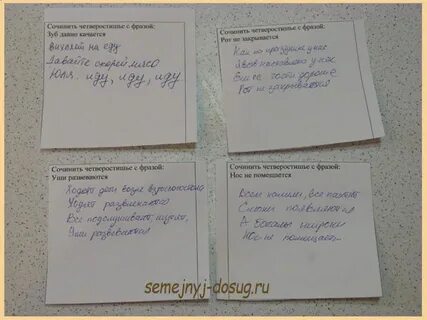 Сочинить четверостишье с фразой:
Зуб давно качается
Выходят на еду
Давайте скорей мясо
Юля. иду, иду, иду
Сочинить четверостишье с фразой:
Рот не закрывается
Как по празднику у нас
у нас
Все гости дорогие
Рот не закрывается
Сочинить четверостишье с фразой:
Уши развеваются
Ходят дети возле
Ходят развлекаются
Все подслушивают
Уши развеваются
Сочинить четверостишье с фразой:
Нос не помещается
Всем налили, все
Слюни появляются
А бокалы широки
Нос не помещается
semejnyj-dosug.ru